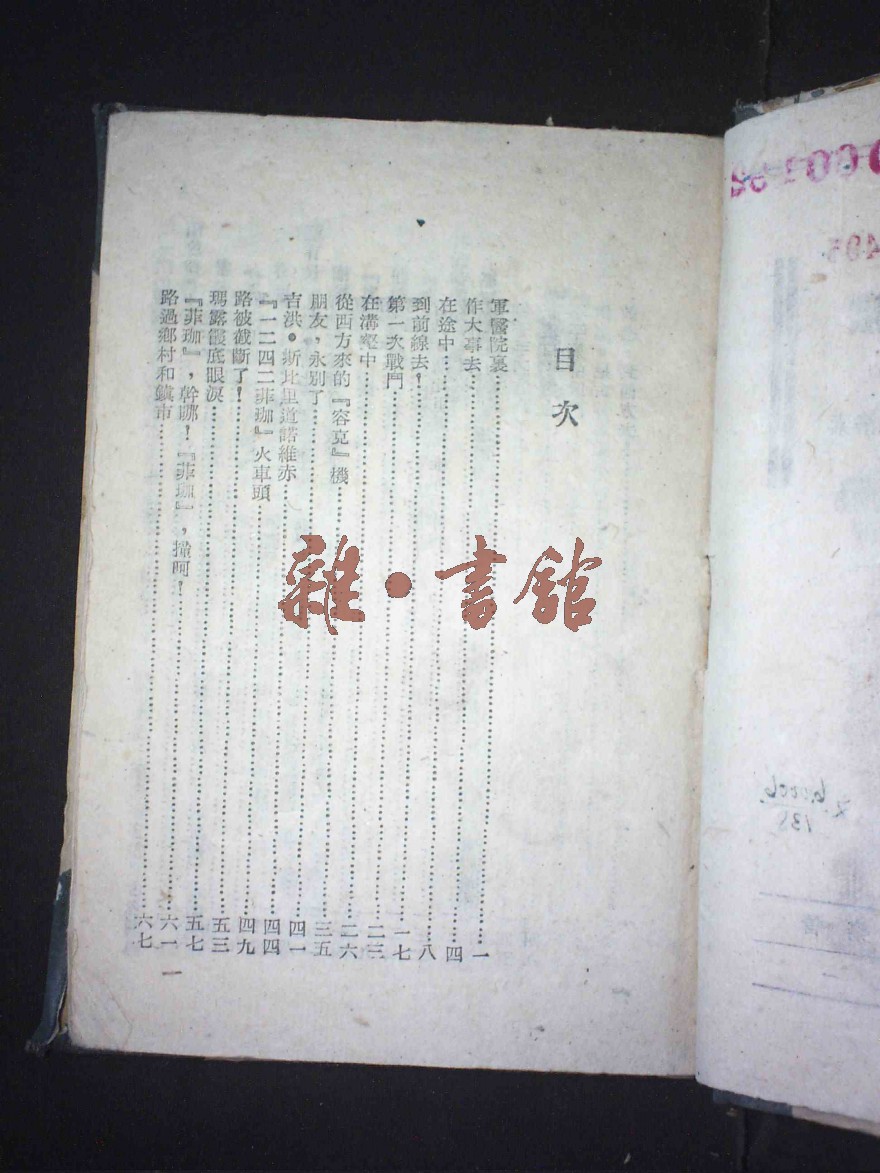 目次
軍醫院裏……一
作大事去……四
在途中……八
到前線去!……一七
第一次戰鬥……二三
在溝壑中……二六
從西方來的『容克』機……三五
朋友,永別了……四一
吉洪•斯比里道諾維赤……四四
『一二四二菲珈』火車頭……四九
路被截斷了!……五三
瑪露霞底眼淚……五七
『菲珈』,幹哪!『菲珈』,呵!……六一
路過鄉村和鎮市……六七
一
雜•書館